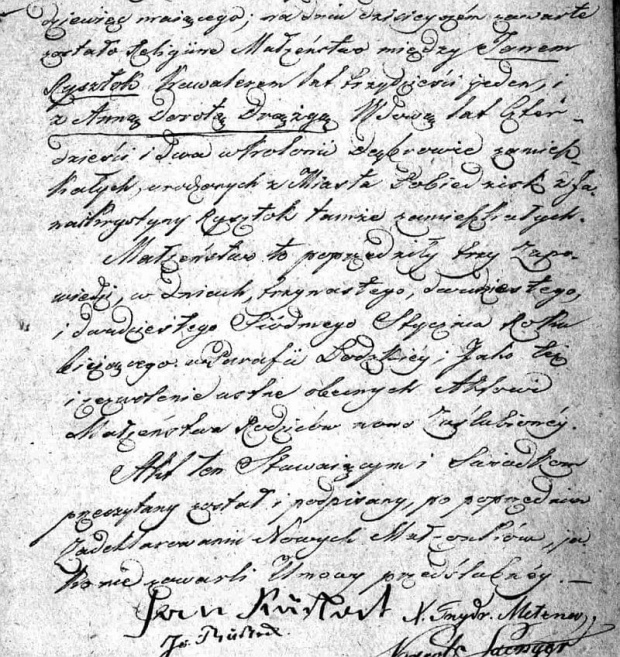 dziewięć maiącego; na dniu dzisieyszém zawarte
zostało Religijne Małżeństwo między Janem
Rysztok Kawalerem lat trzydzieści jeden, i
z Anną Dorotą Drażgą Wdową lat Czter-
dzieści i dwa w Kolonii Dąbrowie zamiesz-
kałych, urodzonych z Miasta Pobiedzisk z Ja-
na i Krystyny Rysztok tamże zamieszkałych.
Małżeństwo to poprzedziły trzy Zapo-
wiedzi, w Dniach, trzynastego, dwudziestego,
i dwudziestego Siódmego Stycznia Roku
bieżącego w Parafii Łodzkiéy i Jako też
i zezwolenie ustne obecnych Aktowi
Małżeństwa Rodziców nowo Zaślubionéy.
Akt ten Stawaiącym i Świadkom
przeczytany został i podpisany, po poprzedniem
Zadeklarowaniu Nowych Małżonków, ja-
ko nie zawarli Umowy przedślubnéy. —
Jan
Metzner